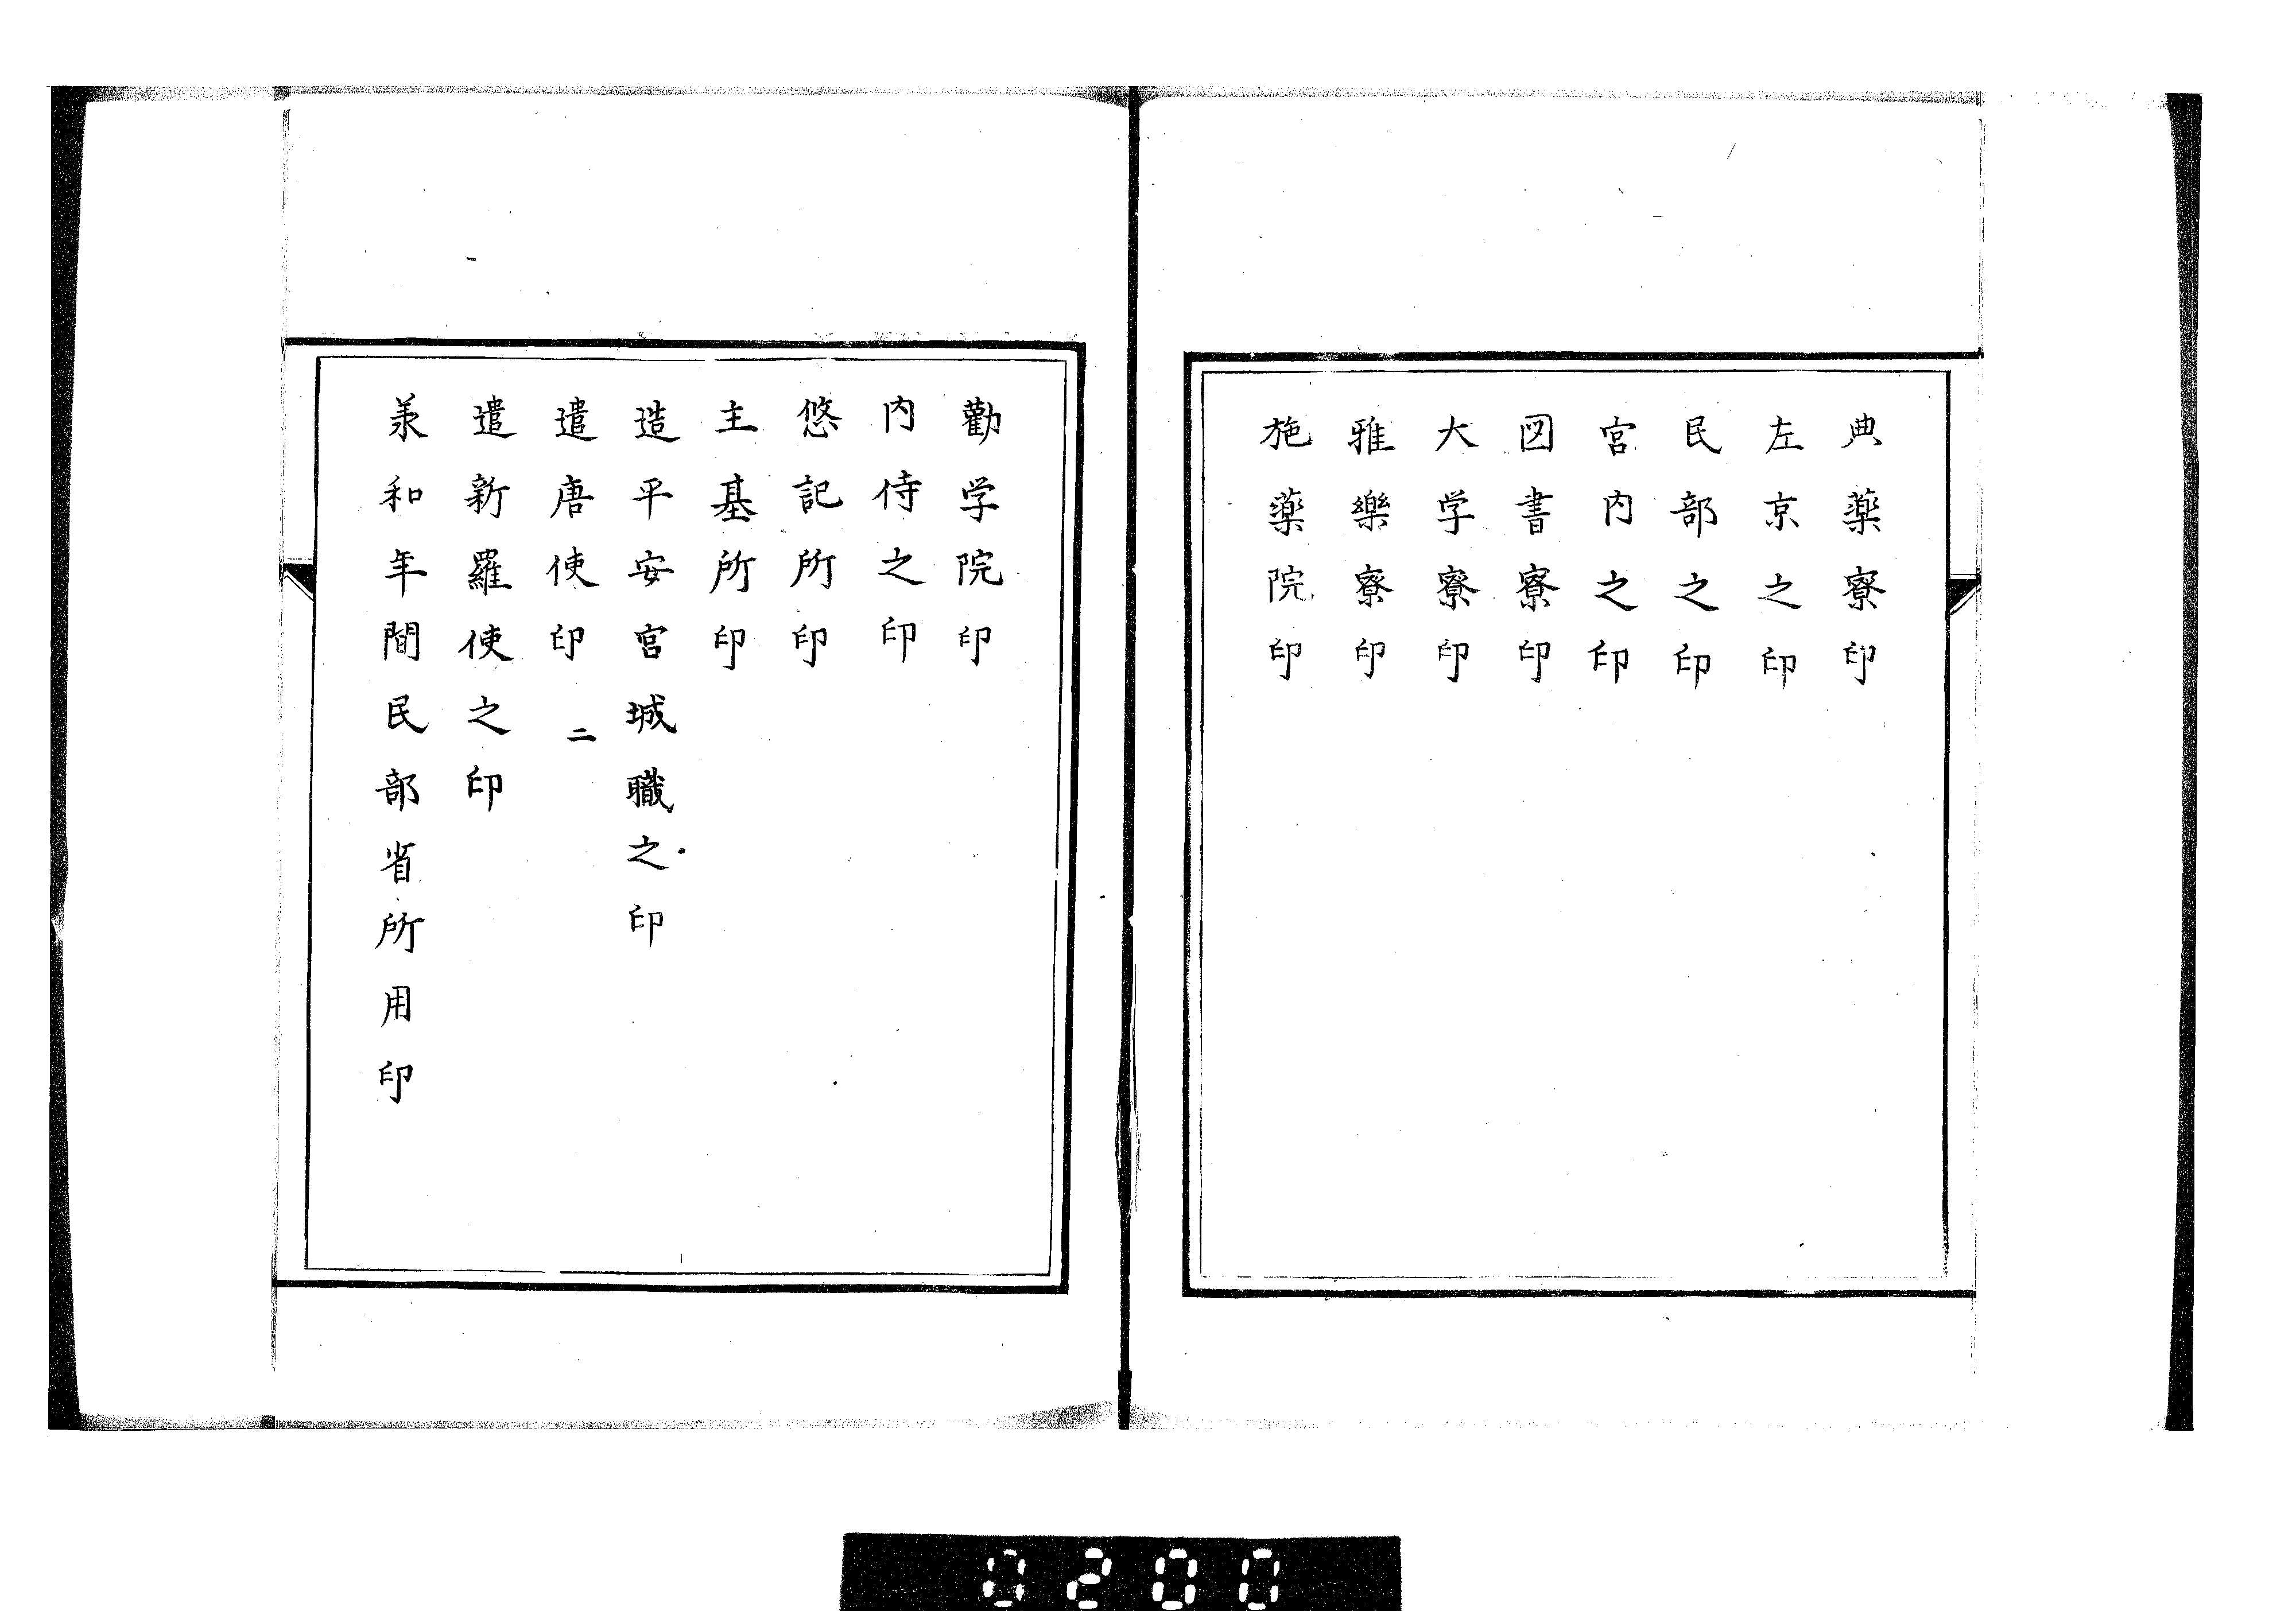 典薬寮印
左京之印
民部之印
宮内之印
図書寮印
大学寮印
雅樂寮印
施薬院印
勸学院印
内侍之印
悠記所印
主基所印
造平安宮城職之印
遣唐使印 二
遣新羅使之印
承和年間民部省所用印
0200